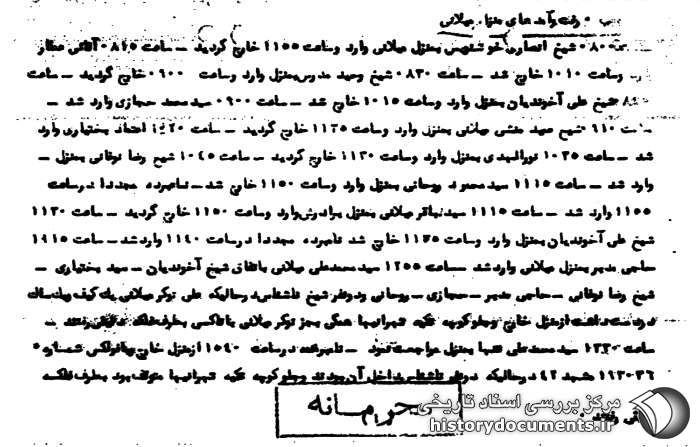 ب ـ رفت و آمد های منزل میلانی
ساعت ۸۰۰ شیخ انصاری خوشنویس بمنزل میلانی وارد وساعت ۱۱۵۵ خارج گردید ــ ساعت ۸۱۵ آقائی عطار
وارد وساعت ۱۰۱۰ خارج شد ــ ساعت ۸۳۰ شیخ وحید مدرس بمنزل وارد وساعت ۹۰۰ خارج گردید ــ ساعت
شیخ علی آخوندیان بمنزل وارد وساعت ۱۰۱۵ خارج شد ــ ساعت ۹۰۰ سید محمد حجازی وارد شد ــ
ساعت ۹۱۰ شیخ منشی میلانی بمنزل وارد وساعت ۱۱۲۵ خارج گردید ــ ساعت اعتماد بختیاری وارد
شد ــ ساعت ۱۰۲۵ نورالهدی بمنزل وارد وساعت ۱۱۳۰ خارج گردید ــ ساعت ۱۰۴۵ شیخ رضا نوقانی بمنزل ــ
وارد شد ــ ساعت ۱۱۱۵ سید محمود روحانی بمنزل وارد وساعت ۱۱۵۰ خارج شد ــ نامبرده مجددا درساعت
۱۱۵۵ وارد شد ــ ساعت ۱۱۱۵ سید باقر میلانی بمنزل برادرش وارد وساعت ۱۱۵۰ خارج گردید ــ ساعت ۱۱۳۰
شیخ علی آخوندیان بمنزل وارد وساعت ۱۱۳۵ خارج شد نامبرده مجددا درساعت ۱۱۴۰ وارد شد ــ ساعت
حاجی مدبر بمنزل میلانی وارد شد ــ ساعت ۱۲۵۵ سید محمد علی میلانی باتفاق شیخ آخوندیان ــ سید بختیاری ــ
شیخ رضا نوقانی ــ حاجی مدبر ــ حجازی ــ روحانی ودونفر شیخ ناشناس درحالیکه علی نوکر میلانی یک کیف
دردست داشت ازمنزل خارج وجلو کوچه تکیه تهرانیها همگی بجز نوکر میلانی با تاکسی بطرف فلکه رفتند ــ
ساعت ۱۳۳۰ سید محمد علی تنها بمنزل مراجعت نمود ــ نامبرده درساعت ۱۵۴۰ ازمنزل خارج وبافولکس شماره
مشهد ۴۲ درحالیکه دونفر ناشناس داخل آن بودند وجلو کوچه تکیه تهرانیها متوقف بود بطرف فلکه
محرمانه
مرکز بررسی اسناد تاریخی
historydocuments.ir